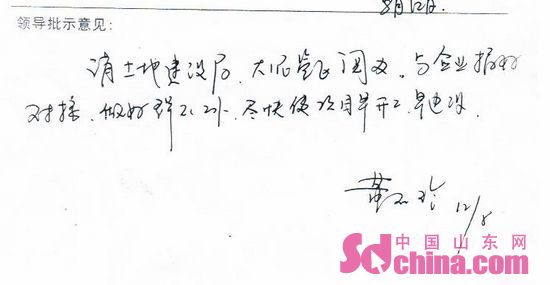 8月12日.
领导批示意见:
请土地建设局、大    阅办,与企业搞好
对接,做好   工   ,尽快使项目早开工,早建设.
黄   玲 12/8
中国山东网
Sdchina.com